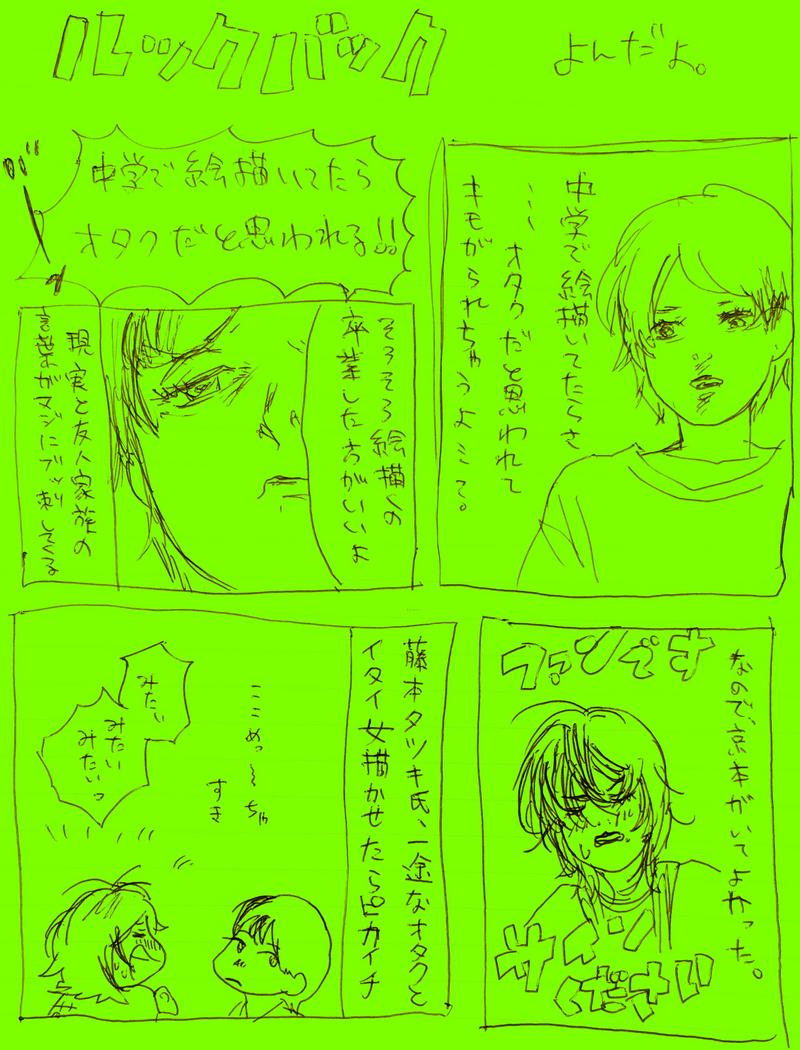 ルックバック
よんだよ。
中学で絵描いてたらさ
… オタクだと思われて
キモがられちゃうよ?って。
バーン
中学で絵描いてたら
オタクだと思われる!!
そろそろ絵描くの
卒業した方がいいよ
現実と友人家族の
言葉がマジにブッ刺してくる
なので、京本がいてよかった。
ファンです
サイン
ください
藤本タツキ氏、一途なオタクと
イタイ女描かせたらピカイチ
ここめっ〜ちゃ
すき
みたい
みたい
みたいっ